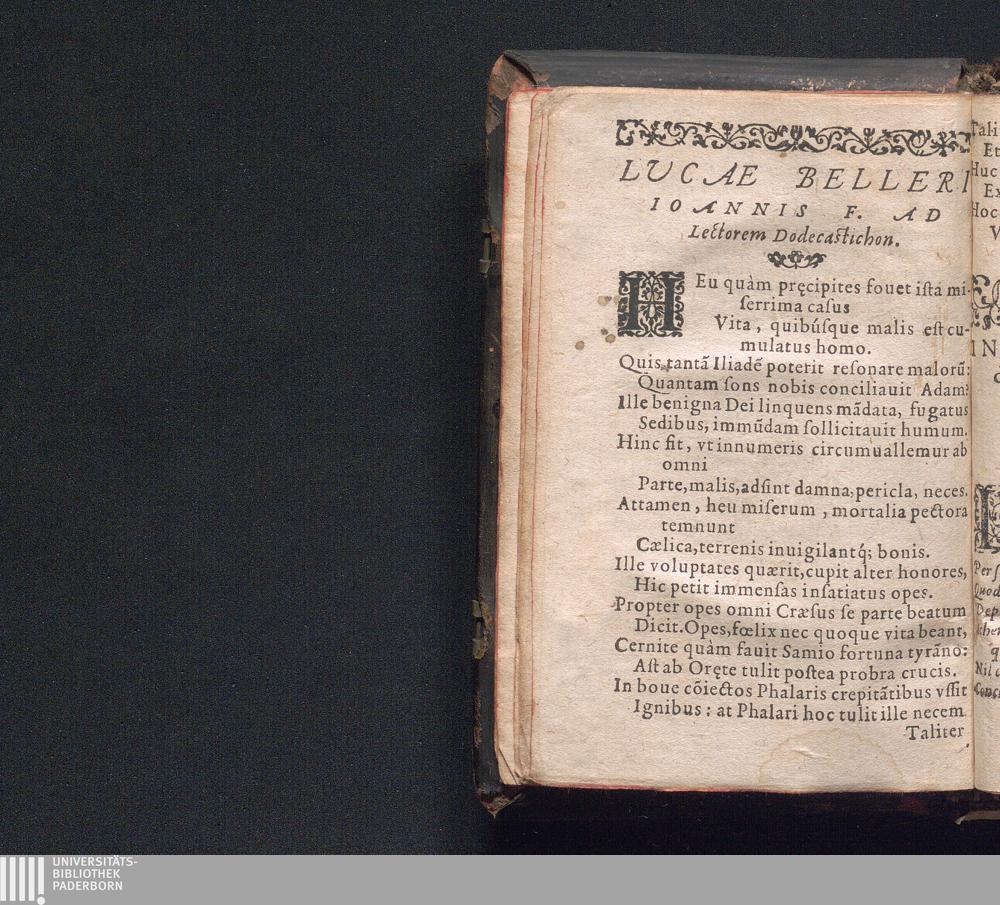 LUCAE BELLERI
IOANNIS F. AD
Lectorem Dodecastichon.
HEu quàm pręcipites fouet ista mi-
serrima casus
Vita, quibúsque malis est cu-
mulatus homo.
Quis tantã Iliadẽ poterit resonare malorũ:
Quantam sons nobis conciliauit Adam?
Ille benigna Dei linquens mãdata, fugatus
Sedibus, immũdam sollicitauit humum.
Hinc fit, vt innumeris circumuallemur ab
omni
Parte, malis, adsint damna, pericla, neces.
Attamen, heu miserum, mortalia pectora
temnunt
Cælica, terrenis inuigilantq́; bonis.
Ille voluptates quærit, cupit alter honores,
Hic petit immensas insatiatus opes.
Propter opes omni Cræsus se parte beatum
Dicit. Opes, fœlix nec quoque vita beant,
Cernite quàm fauit Samio fortuna tyrãno:
Ast ab Oręte tulit postea probra crucis.
In boue cõiectos Phalaris crepitãtibus vssit
Ignibus: at Phalari hoc tulit ille necem
Taliter
Tali
Et
Huc
Ex
Hoc
V
IN
Per s
Quod
Dep
Nil
UNIVERSITÄTS-
BIBLIOTHEK
PADERBORN